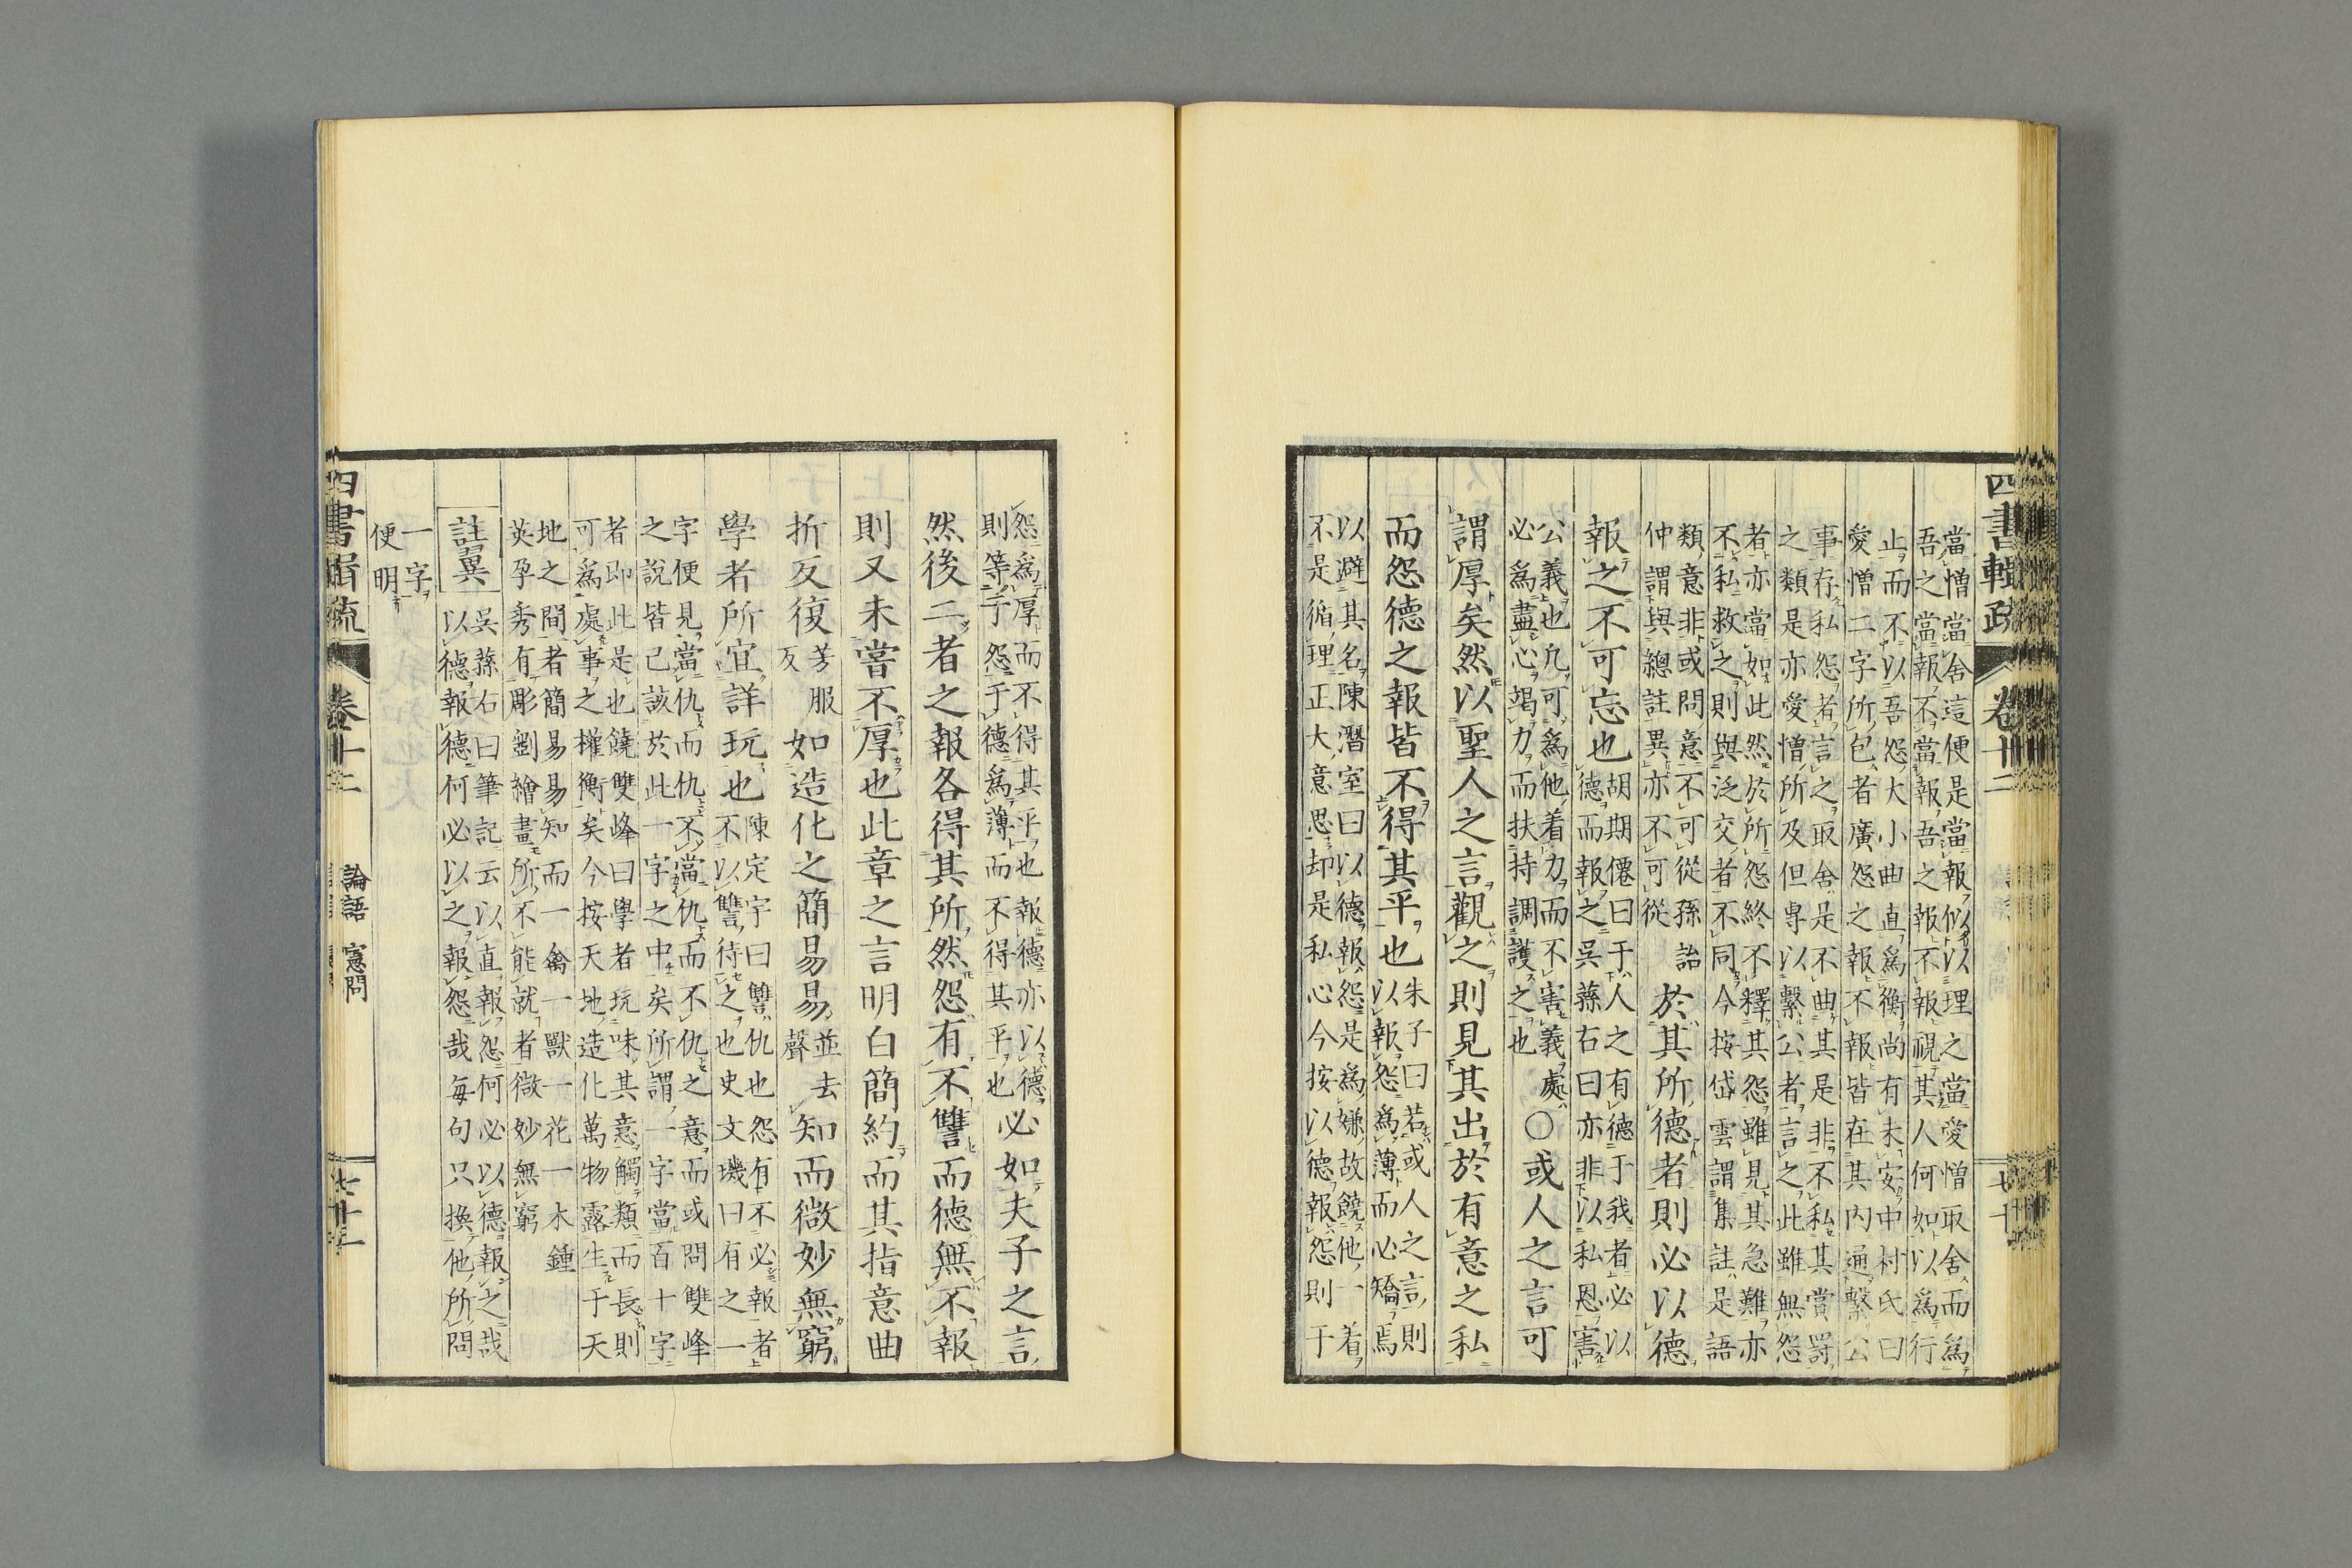 四書輯疏
卷十二
七十
當憎當舍這便是當報似以理之當愛憎取舍而爲
吾之當報不當報吾之報不報視其人何如以爲行
止而不以吾怨大小曲直爲衡尚有未安中村氏曰
愛憎二字所包者廣怨之報不報皆在其內通繫公
事存私怨者言之取舍是不曲其是非不私其賞罰
之類是亦愛憎所及但專以繫公者言之此雖無怨
者亦當如此然於所怨終不釋其怨雖見其急難亦
不私救之則與泛交者不同今按岱雲謂集註是語
類意非或問意不可從孫詒
仲謂與總註異亦不可從
於其所德者則必以德
報之不可忘也
胡期僊曰于人之有德于我者必以
德而報之吳蓀右曰亦非以私恩害
公義也凡可爲他着力而不害義處
必爲盡心竭力而扶持調護之也
〇或人之言可
謂厚矣然以聖人之言觀之則見其出於有意之私
而怨德之報皆不得其平也
朱子曰若或人之言則
以報怨爲薄而必矯焉
以避其名陳潛室曰以德報怨是爲嫌故饒他一着
不是循理正大意思却是私心今按以德報怨則于
怨爲厚而不得其平也報德亦以德
則等于怨于德爲薄而不得其平也
必如夫子之言
然後二者之報各得其所然怨有不讐而德無不報
則又未嘗不厚也此章之言明白簡約而其指意曲
折反復
芳服
反
如造化之簡易易
並去
聲
知而微妙無窮
學者所宜詳玩也
陳定宇曰讐仇也怨有不必報者
不以讐待之也史文璣曰有之一
字便見當仇而仇不當仇而不仇之意而或問雙峰
之說皆已該於此一字之中矣所謂一字當百十字
者即此是也饒雙峰曰學者玩味其意觸類而長則
可爲處事之權衡矣今按天地造化萬物露生于天
地之間者簡易易知而一禽一獸一花一木鍾
英孕秀有彫劉繪畫所不能就者微妙無窮
註翼
吳蓀右曰筆記云以直報怨何必以德報之哉
以德報德何必以之報怨哉每句只換他所問
一字
便明
四書輯疏
卷十二
論語 憲問
七十一